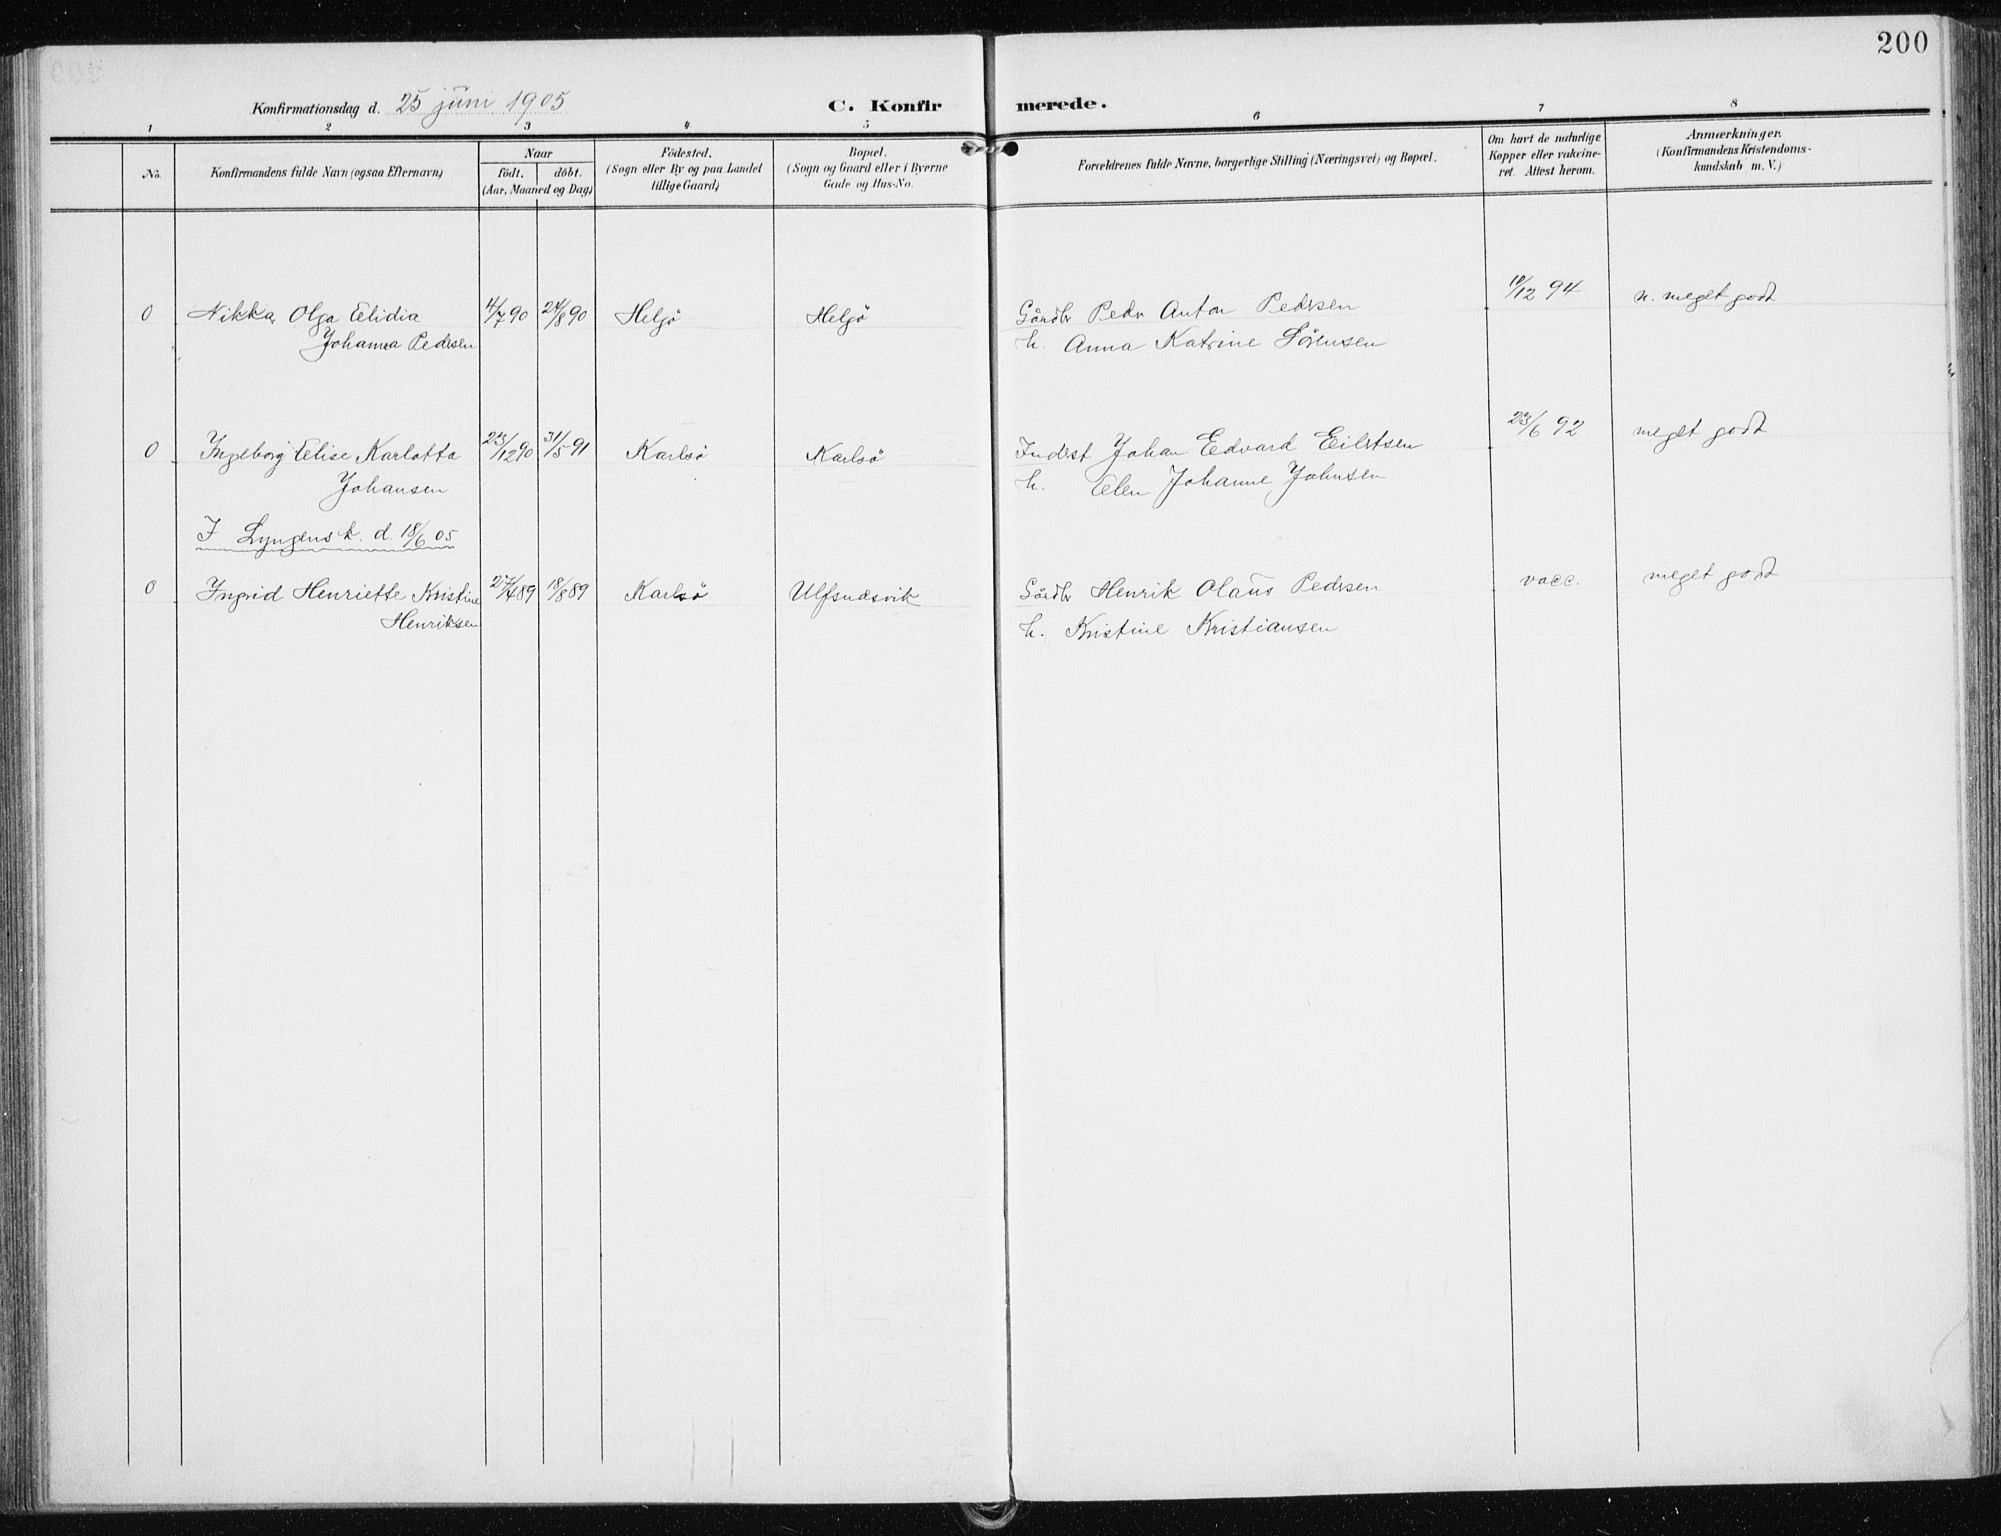 200
Konfirmationsdag d. 25 juni 1905
C. Konfirmerede.
1 2 3 4 5 6 7 8
No.
Konfirmandens fulde Navn (ogsaa Efternavn)
Naar
födt. döbt.
(Aar, Maaned og Dag)
Födested.
(Sogn eller By og paa Landet
tillige Gaard)
Bopæl.
(Sogn og Gaard eller i Byerne
Gade og Hus-No.
Forældrenes fulde Navne, borgerlige Stilling (Næringsvei) og Bopæl.
Om havt de naturlige
Kopper eller vakcine-
ret. Attest herom.
Anmærkninger.
(Konfirmandens Kristendoms-
kundskab m. V.)
0 Nikka Olga Elidia 4/7 90 24/8 90 Helgö Helgö Gårdbr Pedr Anton Pedersen 10/12 94 n. meget godt
Johanna Pedersen h. Anna Katrine Sörensen
0 Ingeborg Elise Karlotta 23/12 90 31/5 91 Karlsö Karlsö Inderst Johan Edvard Eilertsen 23/6 92 meget godt
Johansen h. Elen Johanne Johnsen
I Lyngens k. d. 18/6 05
0 Ingrid Henriette Kristine 27/4 89 18/8 89 Karlsö Ulfsnæsvik Gårdbr Henrik Olaus Pedersen vacc. meget godt
Henriksen h. Kristine Kristiansen